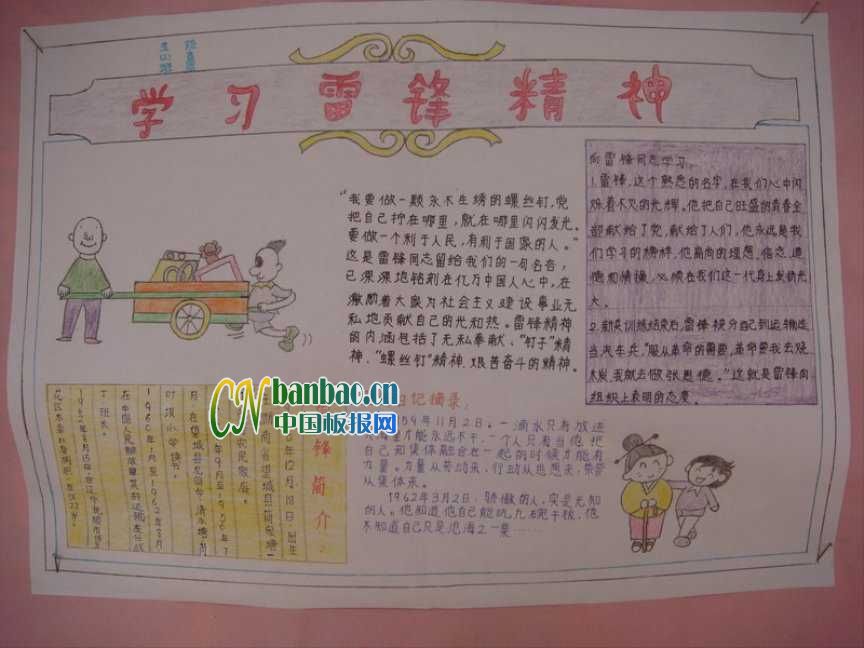 学习雷锋精神
"我要做一颗永不生锈的螺丝钉,党
把自己拧在哪里,就在哪里闪闪发光。
要做一个利于人民,有利于国家的人。"
这是雷锋同志留给我们的一句名言,
已深深地铭刻在亿万中国人心中,在
激励着大家为社会主义建设事业无
私地贡献自己的光和热。雷锋精神
的内涵包括了无私奉献、"钉子"精
神、"螺丝钉"精神、艰苦奋斗的精神。
向雷锋同志学习:
1.雷锋,这个熟悉的名字,在我们心中闪
烁着不灭的光辉。他把自己旺盛的青春全
部献给了党,献给了人们,他永远是我
们学习的榜样,他高尚的理想、信念、道
德和情操,必将在我们这一代身上发扬光
大。
2.新兵训练结束后,雷锋被分配到运输连
当汽车兵,"服从革命的需要,革命需我去烧
木炭,我就去做张思德。"这就是雷锋向
组织上表明的态度。
CNbanbao.cn
中国板报网
记摘录:
59年11月2日。一滴水只有放进
大海里才能永远不干,一个人只有当他把
自己和集体融合在一起的时候才能有
力量。力量从劳动来,行动从思想来,荣誉
从集体来。
1962年3月2日,骄傲的人,实是无知
的人。他知道他自己能吃几碗干饭,他
不知道自己只是沧海之一粟……
锋简介:
年12月18日,出生
湖南省望城县简家塘一
农民家庭。
年9月至1956年7
月,在望城县
时小学读书。
1960年1月至1962年8月
在中国人民解放军某部运输连任战
士、班长。
1962年8月15日,